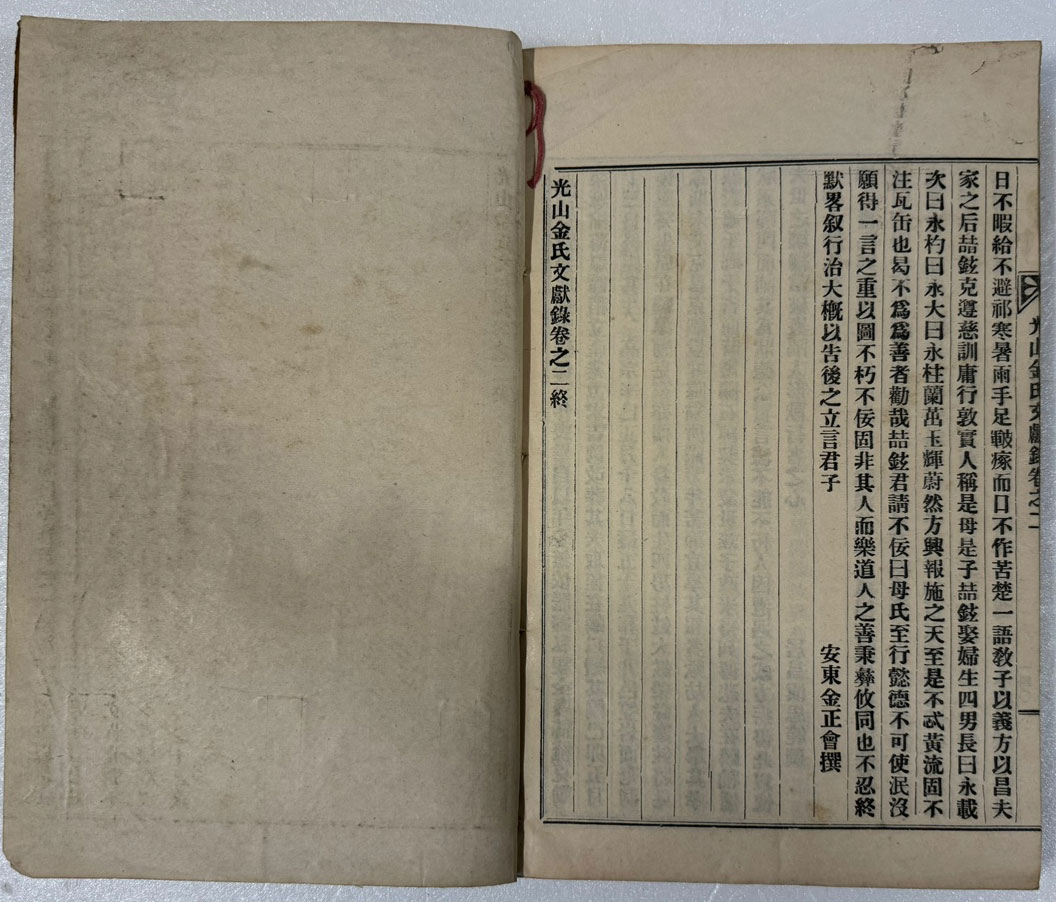 光山金氏文獻錄卷之二
日不暇給不避祁寒暑雨手足皸瘃而口不作苦楚一語敎子以義方以昌夫
家之后喆鉉克遵慈訓庸行敦實人稱是母是子喆鉉娶婦生四男長曰永載
次曰永杓曰永大曰永柱蘭茁玉輝蔚然方興報施之天至是不忒黃流固不
注瓦缶也曷不爲爲善者勸哉喆鉉君請不佞曰母氏至行懿德不可使泯沒
願得一言之重以圖不朽不佞固非其人而樂道人之善秉彝攸同也不忍終
默畧叙行治大槪以告後之立言君子
安東金正會撰
光山金氏文獻錄卷之二終